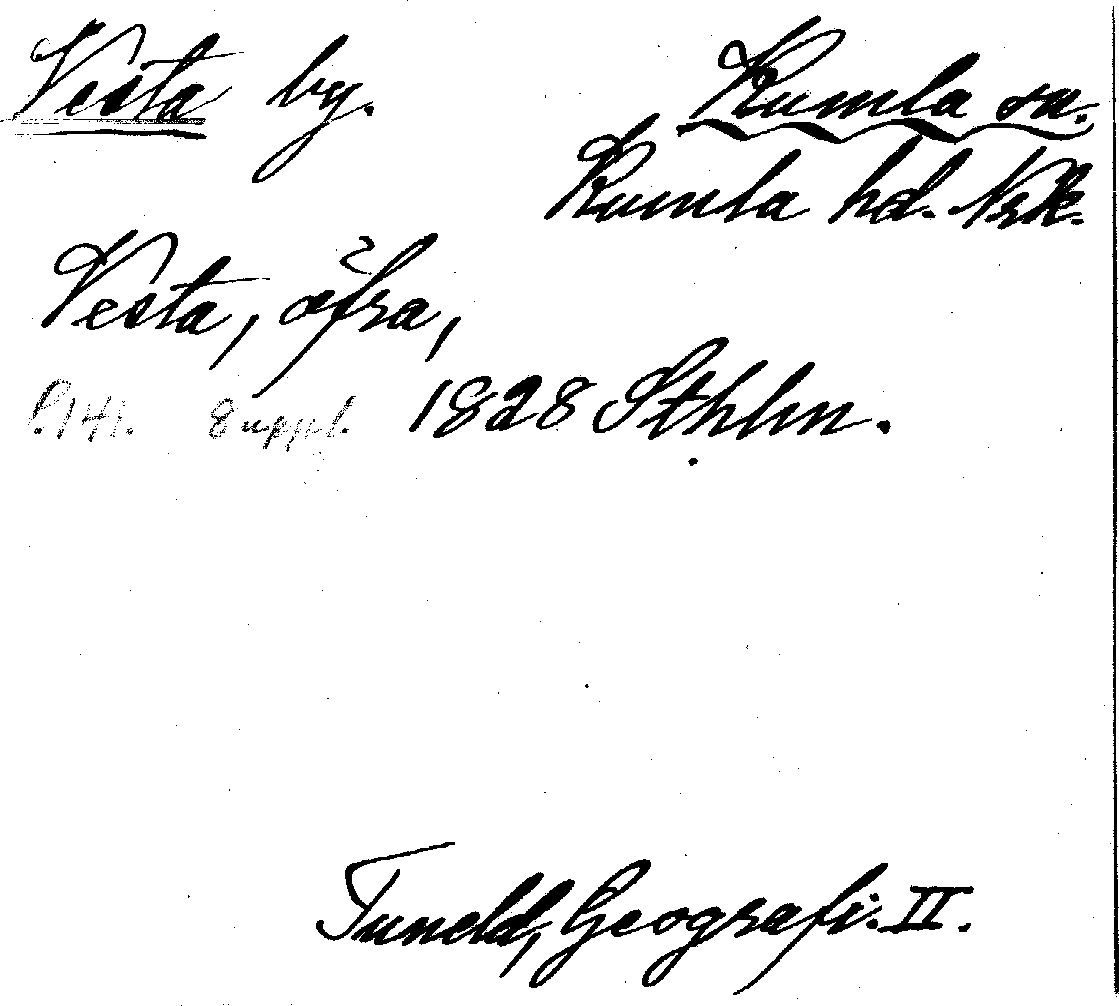 Vesta by. Kumla sn.
Kumla hd. Nrk.
Vesta, öfra,
P. 141. Suppl. 1828 Sthlm.
Tuneld, Geografi. II.